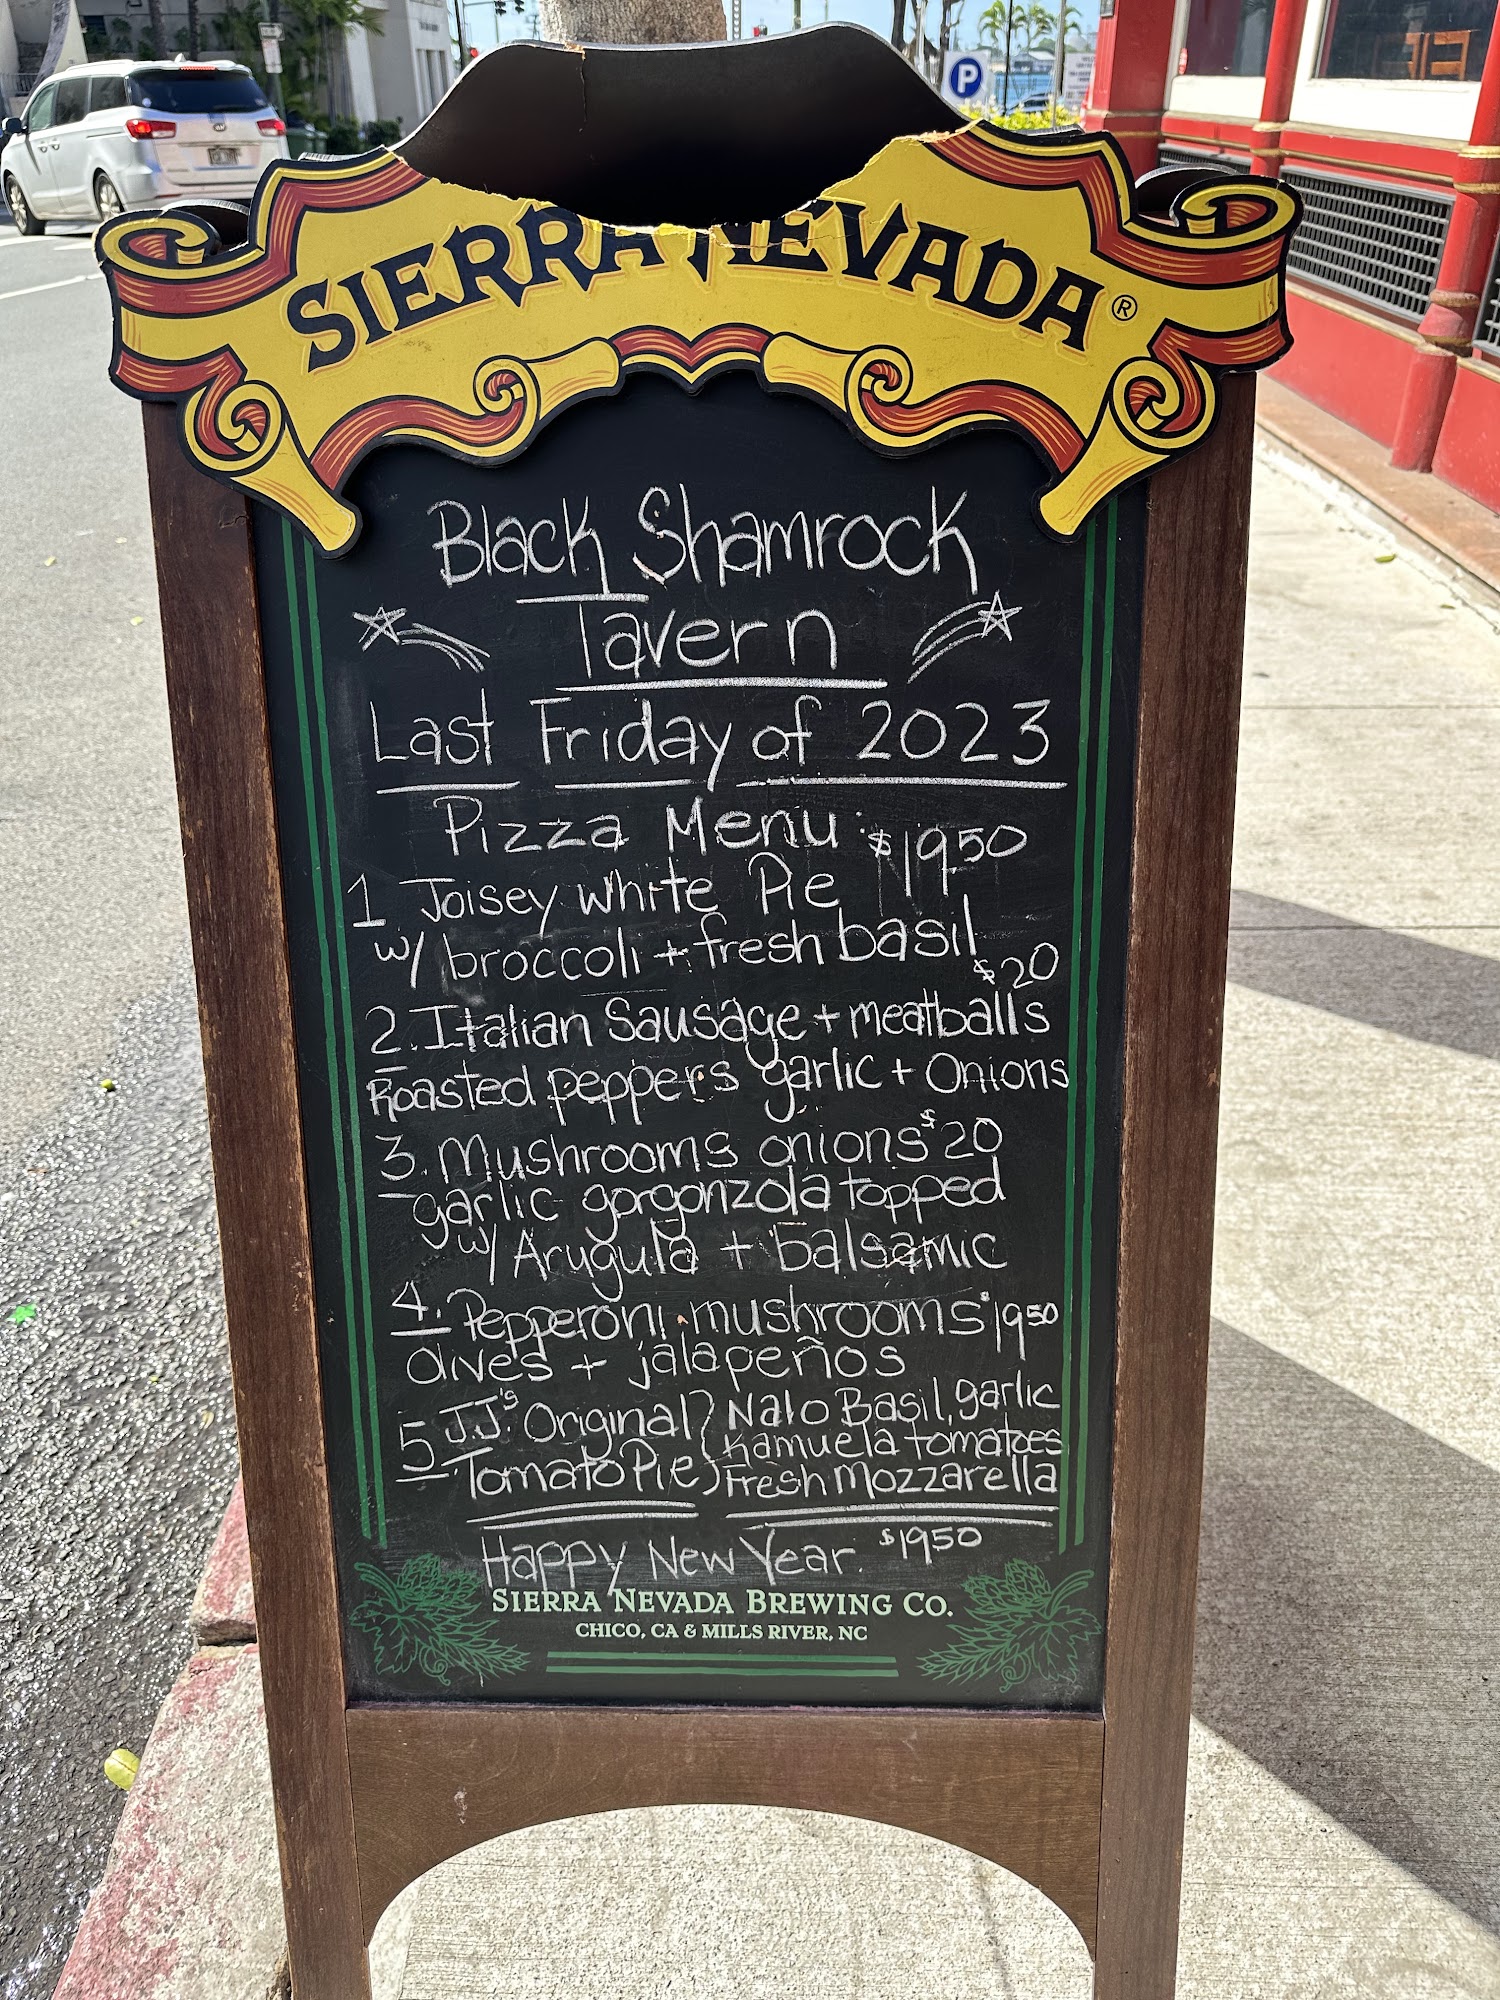 P
SIERRA NEVADA®
Black Shamrock
Tavern
Last Friday of 2023
Pizza Menu: $19.50
1 Joisey White Pie
w/ broccoli + fresh basil
$20
2. Italian Sausage + meatballs
Roasted peppers garlic + Onions
3. Mushrooms onions $20
garlic gorgonzola topped
w/ Arugula + balsamic
4. Pepperoni mushrooms $19.50
olives + jalapeños
5. JJ's Original Tomato Pie
Nalo Basil, garlic
Kamuela tomatoes
Fresh Mozzarella
Happy New Year. $19.50
SIERRA NEVADA BREWING CO.
CHICO, CA & MILLS RIVER, NC